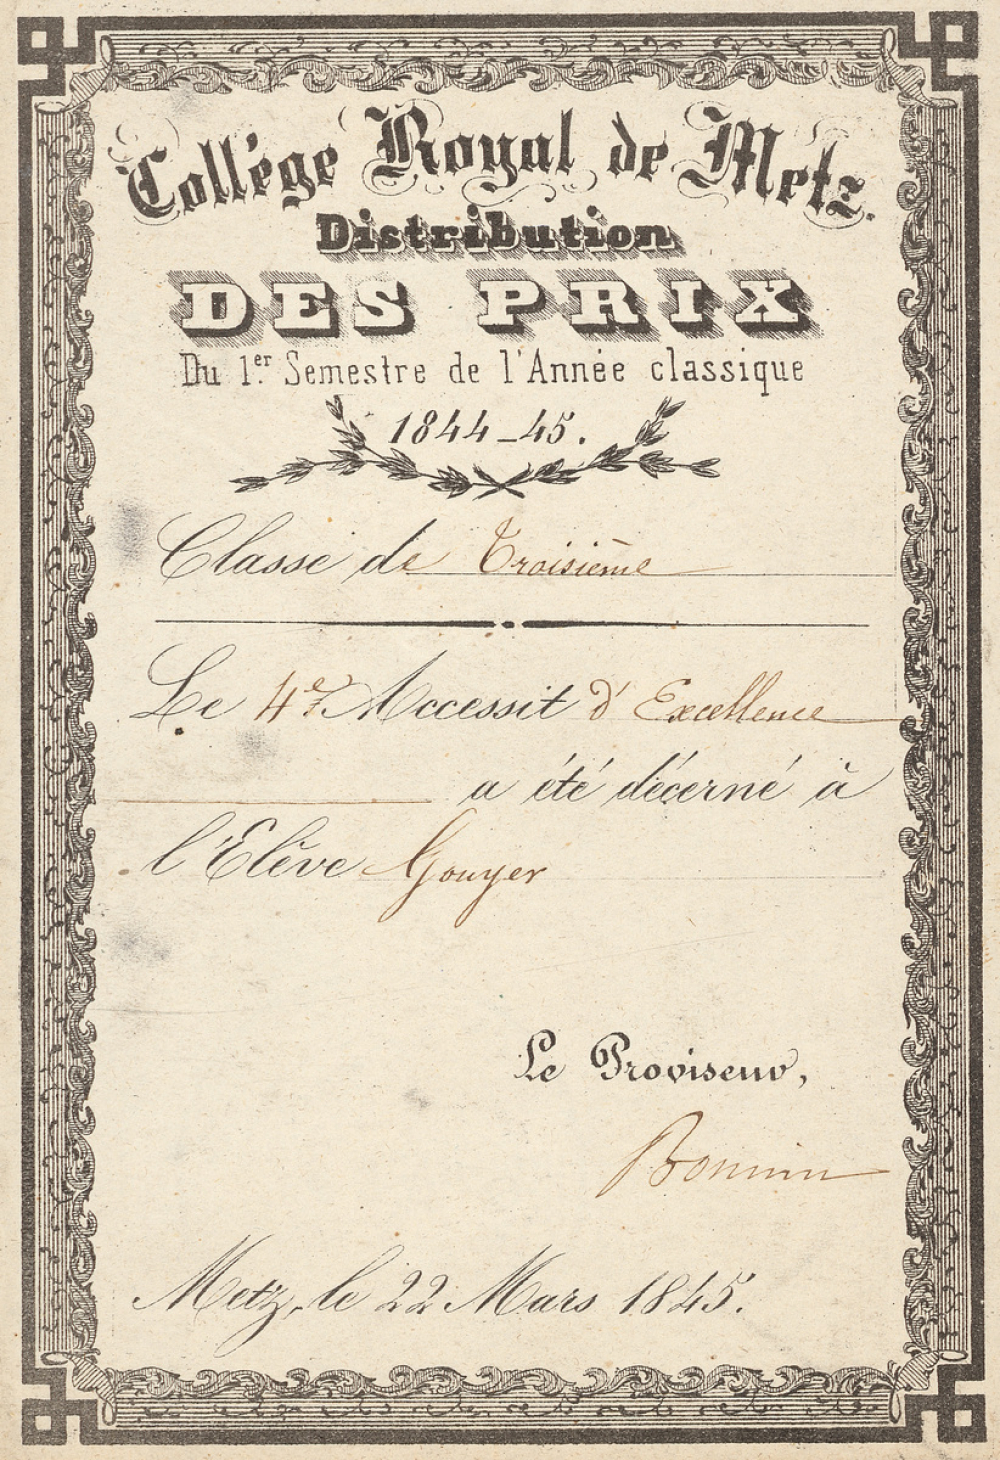 Collége Royal de Metz.
Distribution
DES PRIX
Du 1er. Semestre de l'Année classique
1844-45.
Classe de Troisième
Le 4e. Accessit d'Excellence
a été décerné à
l'Elève Gouyer
Le Proviseur,
Bonnin
Metz, le 22 Mars 1845.